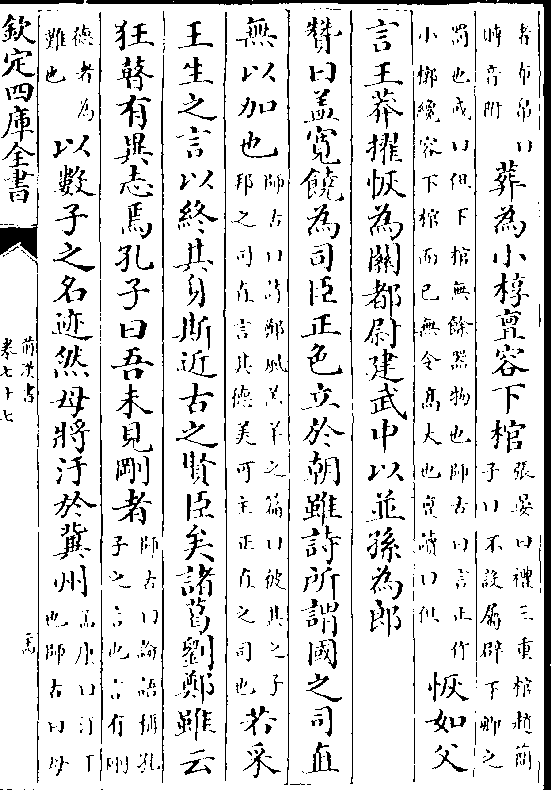 者布帛曰
時音附
葬為小椁亶容下棺
張晏曰禮三重棺趙簡
子曰不設屬辟下卿之
罰也或曰但下棺無餘器物也師古曰言正作
小椰纔容下棺而已無令高大也亶讀曰但
恢如父
言王莽擢恢為關都尉建武中以並孫為郎
贊曰盖寛饒為司臣正色立於朝雖詩所謂國之司直
無以加也
師古曰詩鄭風羔羊之篇曰彼其之子
邦之司直言其德美可主正直之司也
若采
王生之言以終其身斯近古之賢臣矣諸葛劉鄭雖云
狂瞽有異志焉孔子曰吾未見剛者
師古曰論語稱孔
子之言也言有剛
德者為
難也
以數子之名迹然毋將汙於冀州
孟康曰汙下
也師古曰毋
欽定四庫全書
前漢書
卷七十七